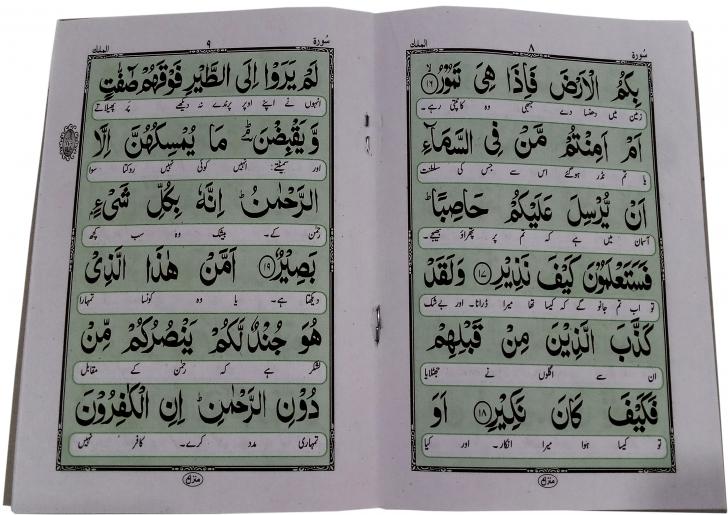 سُورة ٨ الملك
بِكُمُ الْاَرْضَ فَاِذَا هِيَ تَمُوْرُ ﴿١٦﴾
زمین میں دھنسا دے جبھی وہ کانپتی رہے۔
اَمْ اَمِنْتُمْ مَّنْ فِي السَّمَآءِ
یا تم نڈر ہوگئے اس سے جس کی سلطنت
اَنْ يُّرْسِلَ عَلَيْكُمْ حَاصِبًا ؕ
آسمان میں ہے کہ تم پر پتھراؤ بھیجے۔
فَسَتَعْلَمُوْنَ كَيْفَ نَذِيْرِ ﴿١٧﴾ وَلَقَدْ
تو اب تم جانو گے کہ کیسا تھا میرا ڈرانا۔ اور بے شک
كَذَّبَ الَّذِيْنَ مِنْ قَبْلِهِمْ
ان سے اگلوں نے جھٹلایا
فَكَيْفَ كَانَ نَكِيْرِ ﴿١٨﴾ اَوَ
تو کیسا ہوا میرا انکار۔ اور کیا
منزل
سُورة ٩ الملك
لَمْ يَرَوْا اِلَى الطَّيْرِ فَوْقَهُمْ صٰٓفّٰتٍ
انہوں نے اپنے اوپر پرندے نہ دیکھے پر پھیلاتے
وَّيَقْبِضْنَ ؔۘ مَا يُمْسِكُهُنَّ اِلَّا
اور سمیٹتے۔ انہیں کوئی نہیں روکتا سوا
الرَّحْمٰنُ ؕ اِنَّهٗ بِكُلِّ شَيْءٍۭ
رحمٰن کے۔ بیشک وہ سب کچھ
بَصِيْرٌ ﴿١٩﴾ اَمَّنْ هٰذَا الَّذِيْ
دیکھتا ہے۔ یا وہ کونسا تمہارا
هُوَ جُنْدٌ لَّكُمْ يَنْصُرُكُمْ مِّنْ
لشکر ہے کہ رحمٰن کے مقابل
دُوْنِ الرَّحْمٰنِ ؕ اِنِ الْكٰفِرُوْنَ
تمہاری مدد کرے۔ کافر نہیں
منزل